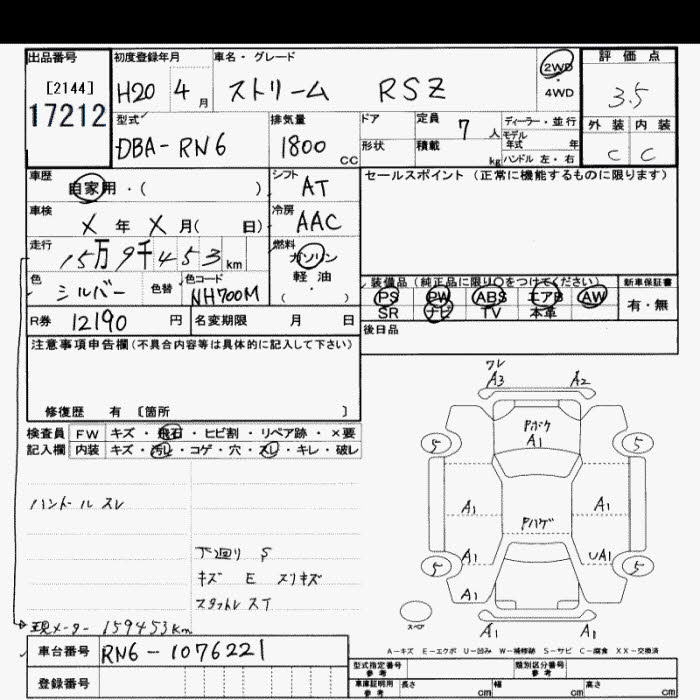 出品番号 初度登録年月 車名・グレード 2WD・4WD 評価点
[2144] H20 4月 ストリーム RSZ 3.5
17212 型式 排気量 ドア 定員 7人 ディーラー・並行 外装 内装
DBA-RN6 1800 CC 形状 積載 kg モデル年式 年 C C
ハンドル 左・右
車歴 自家用・( ) シフト AT セールスポイント (正常に機能するものに限ります)
車検 X年 X月( 日) 冷房 AAC
走行 15万9千453 km 燃料 ガソリン
軽油・( )
色 シルバー 色替 色コード NH700M 装備品 (純正品に限り○をつけてください) 新車保証書
PS PW ABS エアB AW 有・無
SR ナビ TV 本革
R券 12190 円 名変期限 月 日 後日品
注意事項申告欄(不具合内容等は具体的に記入して下さい)
修復歴 有 〔箇所 〕
検査員 FW キズ・飛石・ヒビ割・リペア跡・×要
記入欄 内装 キズ・汚レ・コゲ・穴・スレ・キレ・破レ
ハンドル スレ
下廻り S
キズ E スリキズ
スタットレス T
現メーター 159453km
ワレ
A3 A2
Pボケ
A1
5 5
A1 A1
Pハゲ
A1 UA1
5 5
A1
スペア A1 A1
A-キズ E-エクボ U-凹み W-補修跡 S-サビ C-腐食 XX-交換済
車台番号 RN6-1076221
登録番号
型式指定番号 参考 類別区分番号 参考
車庫証明用 参考 長さ cm 幅 cm 高さ cm